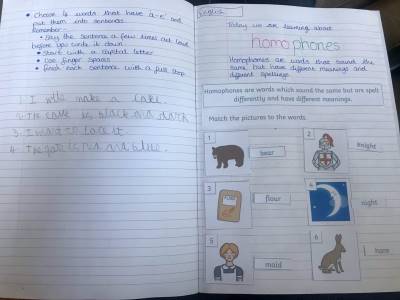 • Choose 4 words that have 'a-e' and
put them into sentences.
Remember -
• Say the sentence a few times out loud
before you write it down
• Start with a capital letter
• Use finger spaces
• Finish each sentence with a full stop.
1. I make a cake.
2. The cave is black and dark
3. I want to
4. The gate is red and blue.
English
Today we are learning about
homophones
Homophones are words that sound the
same but have different meanings and
different spellings
Homophones are words which sound the same but are spelt
differently and have different meanings.
Match the pictures to the words.
1
bear
2
knight
3
flour
4
night
5
maid
6
hare